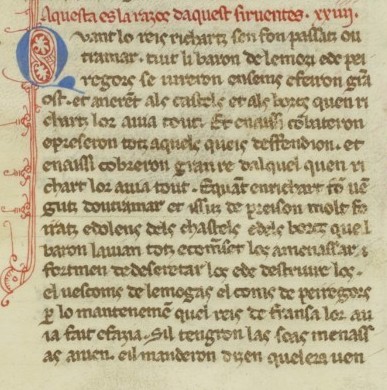 Aquesta es la razos daquest siruentes. xxiiij.
Qvant lo reis richartz sen fon passatz ou
tramar. tuit li baron de lemozi ede pei
regors se iureron ensems efeiron gran
ost. et aneren als castels et als borcs quen ri
chartz lor auia tout. Et enaissi conbateron
epreseron totz aquels queis deffendion. et
enaissi cobreron gran re dalquel quen ri
chart lor auia tout. Equant enrichart fon uen
gutz doutramar et issitz de preison molt fo
iratz edolens dels chastels edels borcs quel
baron lauian totz ecomset los amenassar
fortmen de deseretar los ede destruire los.
el uescoms de lemogas el coms de peiregors
per lo mantenemen quel reis de fransa lor au
ia fait efazia. Sil tengron las soas menass
as anien. eil manderon dizen quel era uen